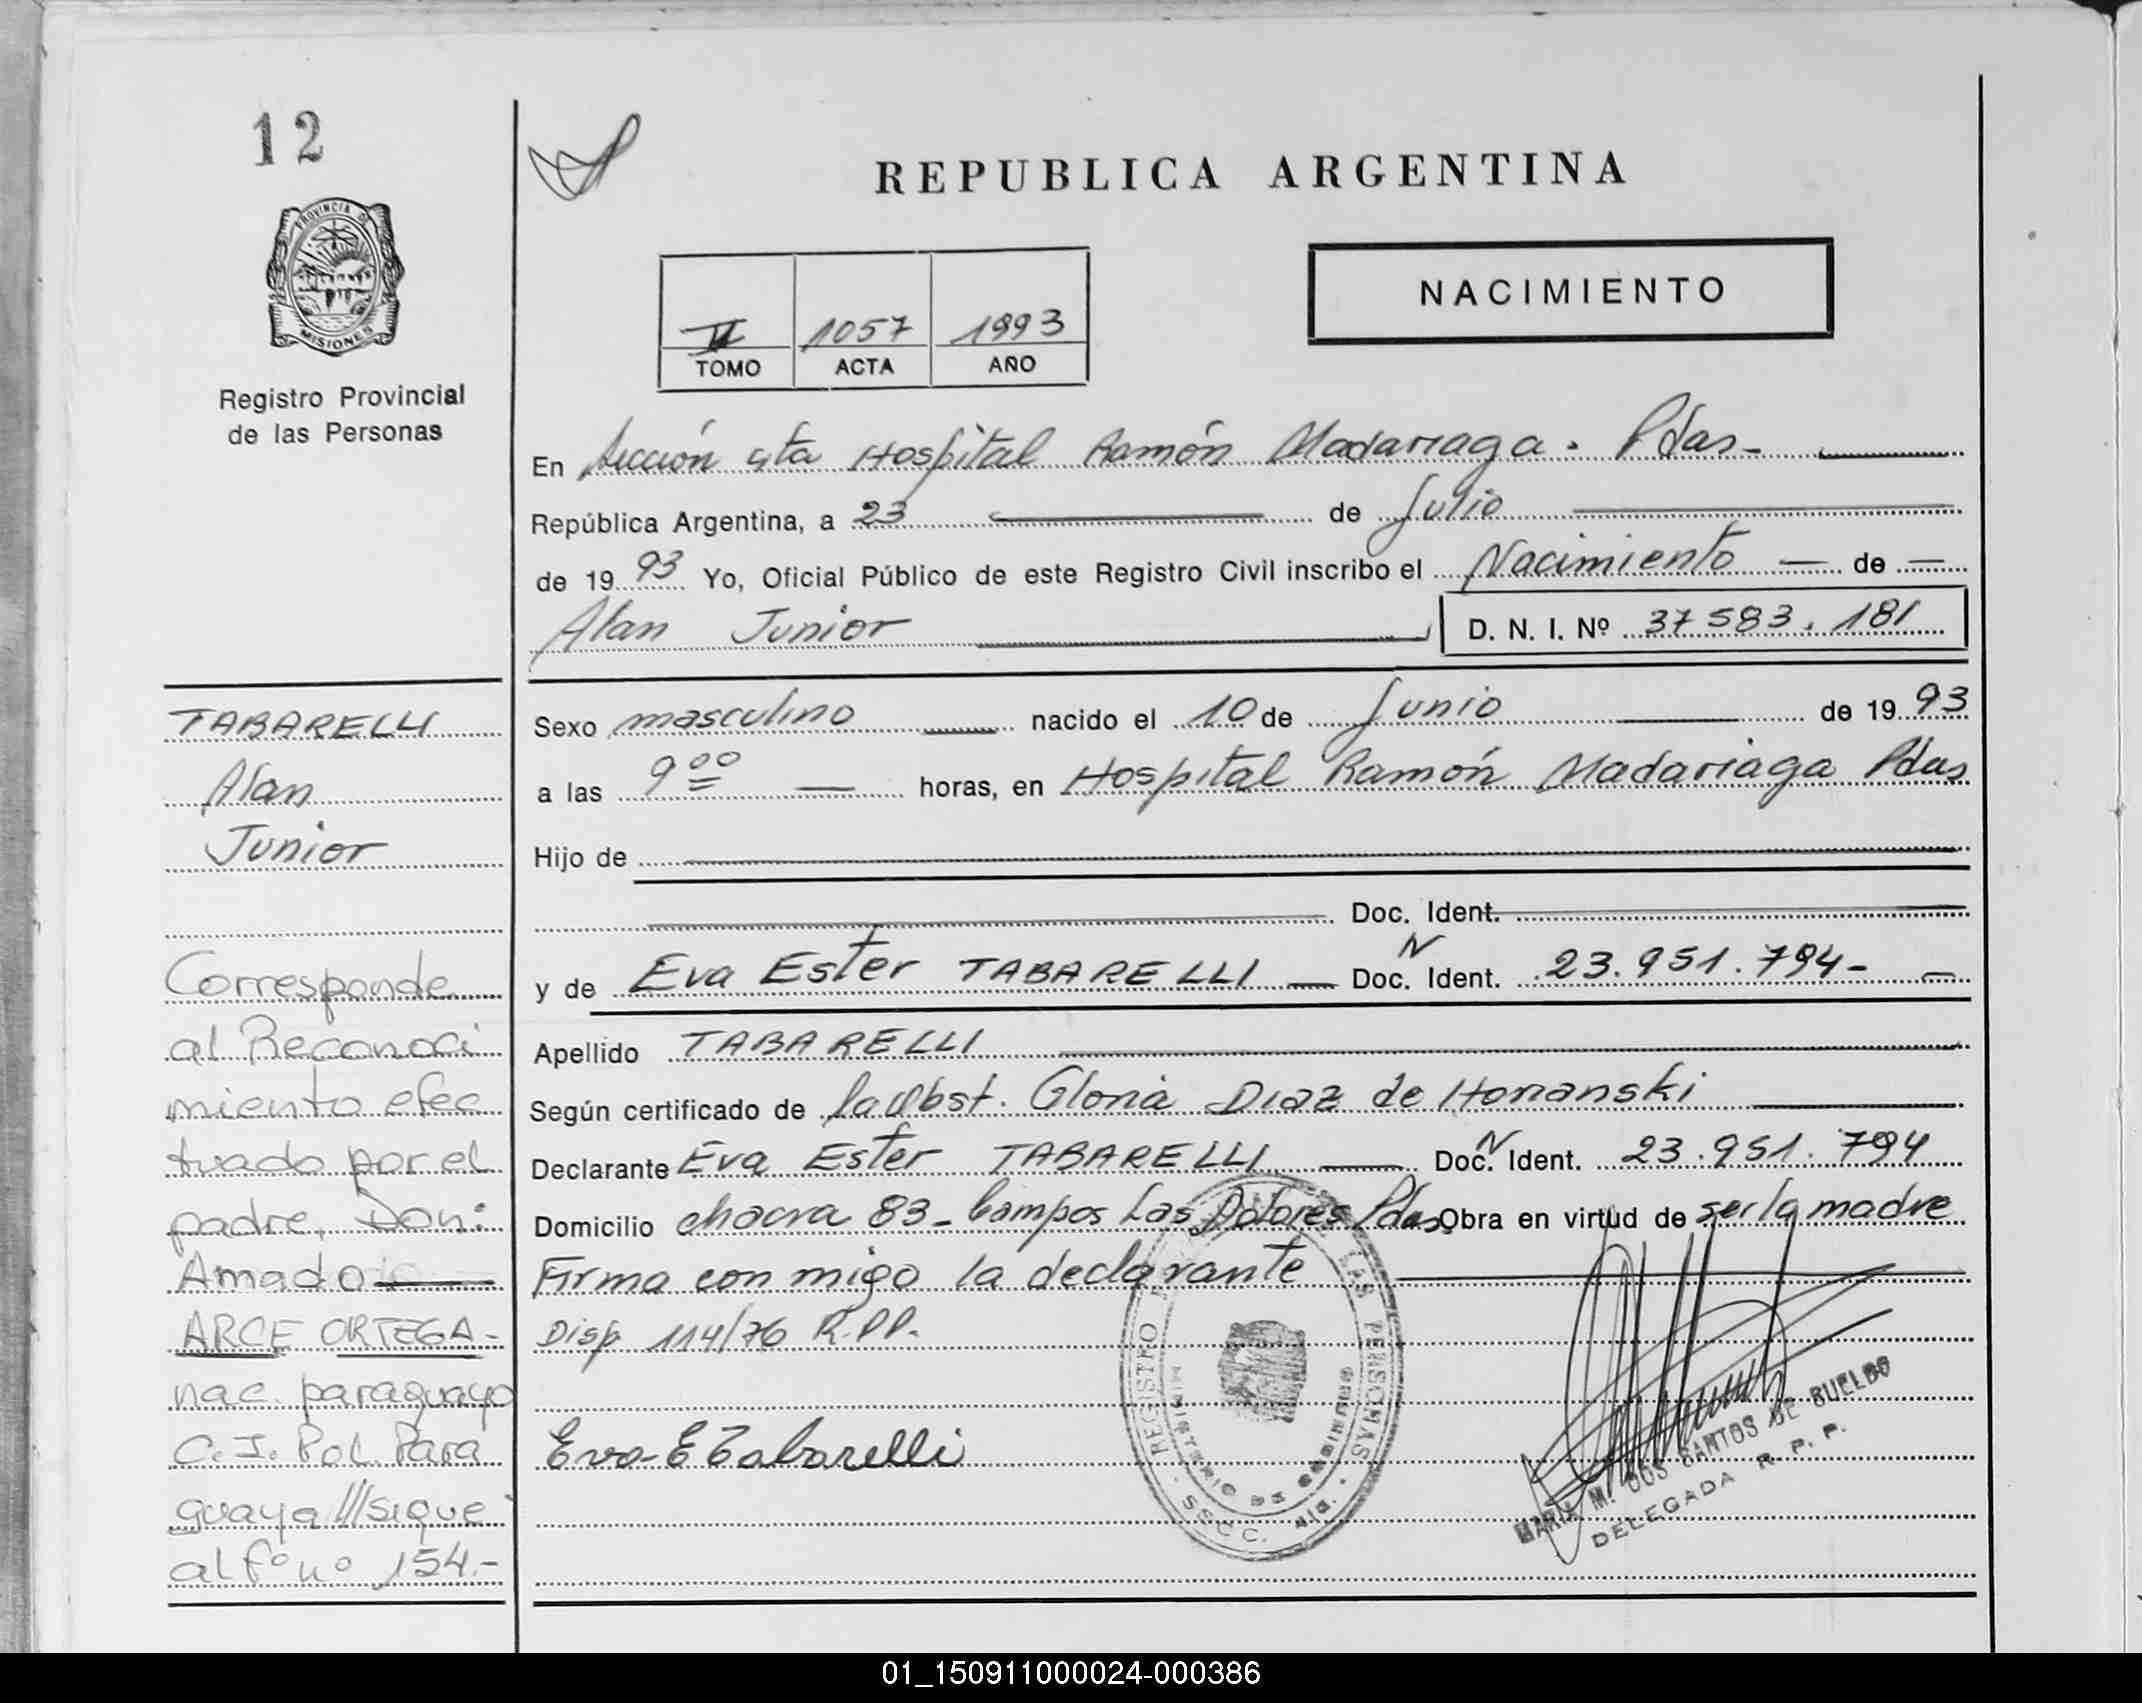 12
PROVINCIA DE
MISIONES
Registro Provincial
de las Personas
REPUBLICA ARGENTINA
NACIMIENTO
1057 1993
TOMO ACTA AÑO
En Sección 4ta Hospital Ramón Madariaga. Pdas-
República Argentina, a 23 de Julio
de 1993 Yo, Oficial Público de este Registro Civil inscribo el Nacimiento de
Alan Junior D. N. I. Nº 37583.181
Sexo masculino nacido el 10 de Junio de 1993
a las 9 00 horas, en Hospital Ramón Madariaga Pdas
Hijo de
Doc. Ident.
y de Eva Ester TABARELLI Doc. N Ident. 23.951.794-
Apellido TABARELLI
Según certificado de la Obst. Gloria Diaz de Honanski
Declarante Eva Ester TABARELLI Doc. N Ident. 23.951.794
Domicilio chacra 83- Campos Las Dolores Pdas Obra en virtud de ser la madre
Firma con migo la declarante
Disp 114/76 R.PP.
Eva-E Tabarelli
REGISTRO LAS PERSONAS
MINISTERIO DE GOBIERNO
SSCC.
MARIA M. DOS SANTOS DE BUELDO
DELEGADA R. P. P.
TABARELLI
Alan
Junior
Corresponde
al Reconoci
miento efec
tuado por el
padre, Don:
Amado
ARCE ORTEGA-
nac. paraguayo
C.I. Pol. Para
guaya ///sigue
al fº nº 154.-
01_150911000024-000386